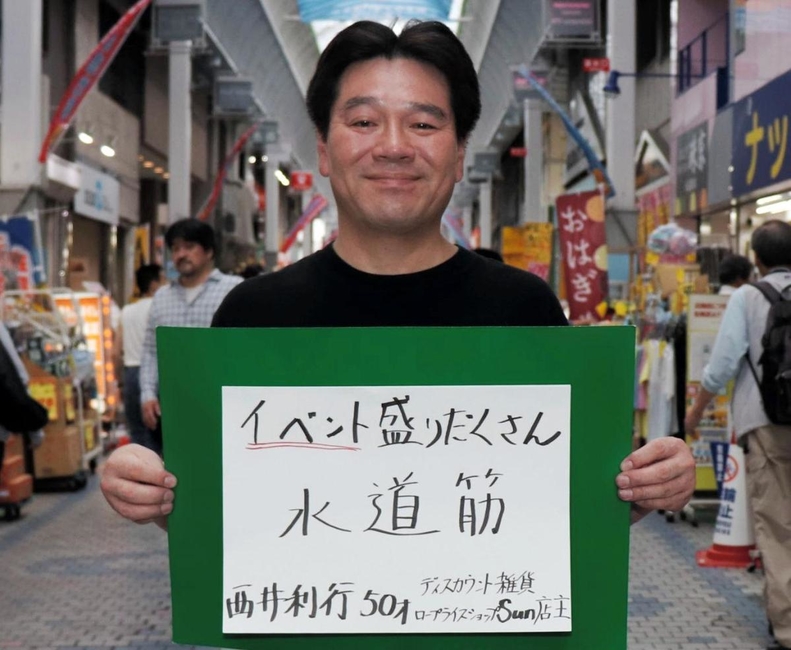 イベント盛りたくさん
水道筋
西井利行 50才
ディスカウント雑貨
ロープライスショップSun店主
おはぎ
ナッ